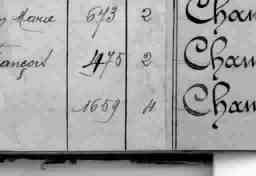 Marie 673 2 Cham
ançois 475 2 Cham
1659 4 Cham